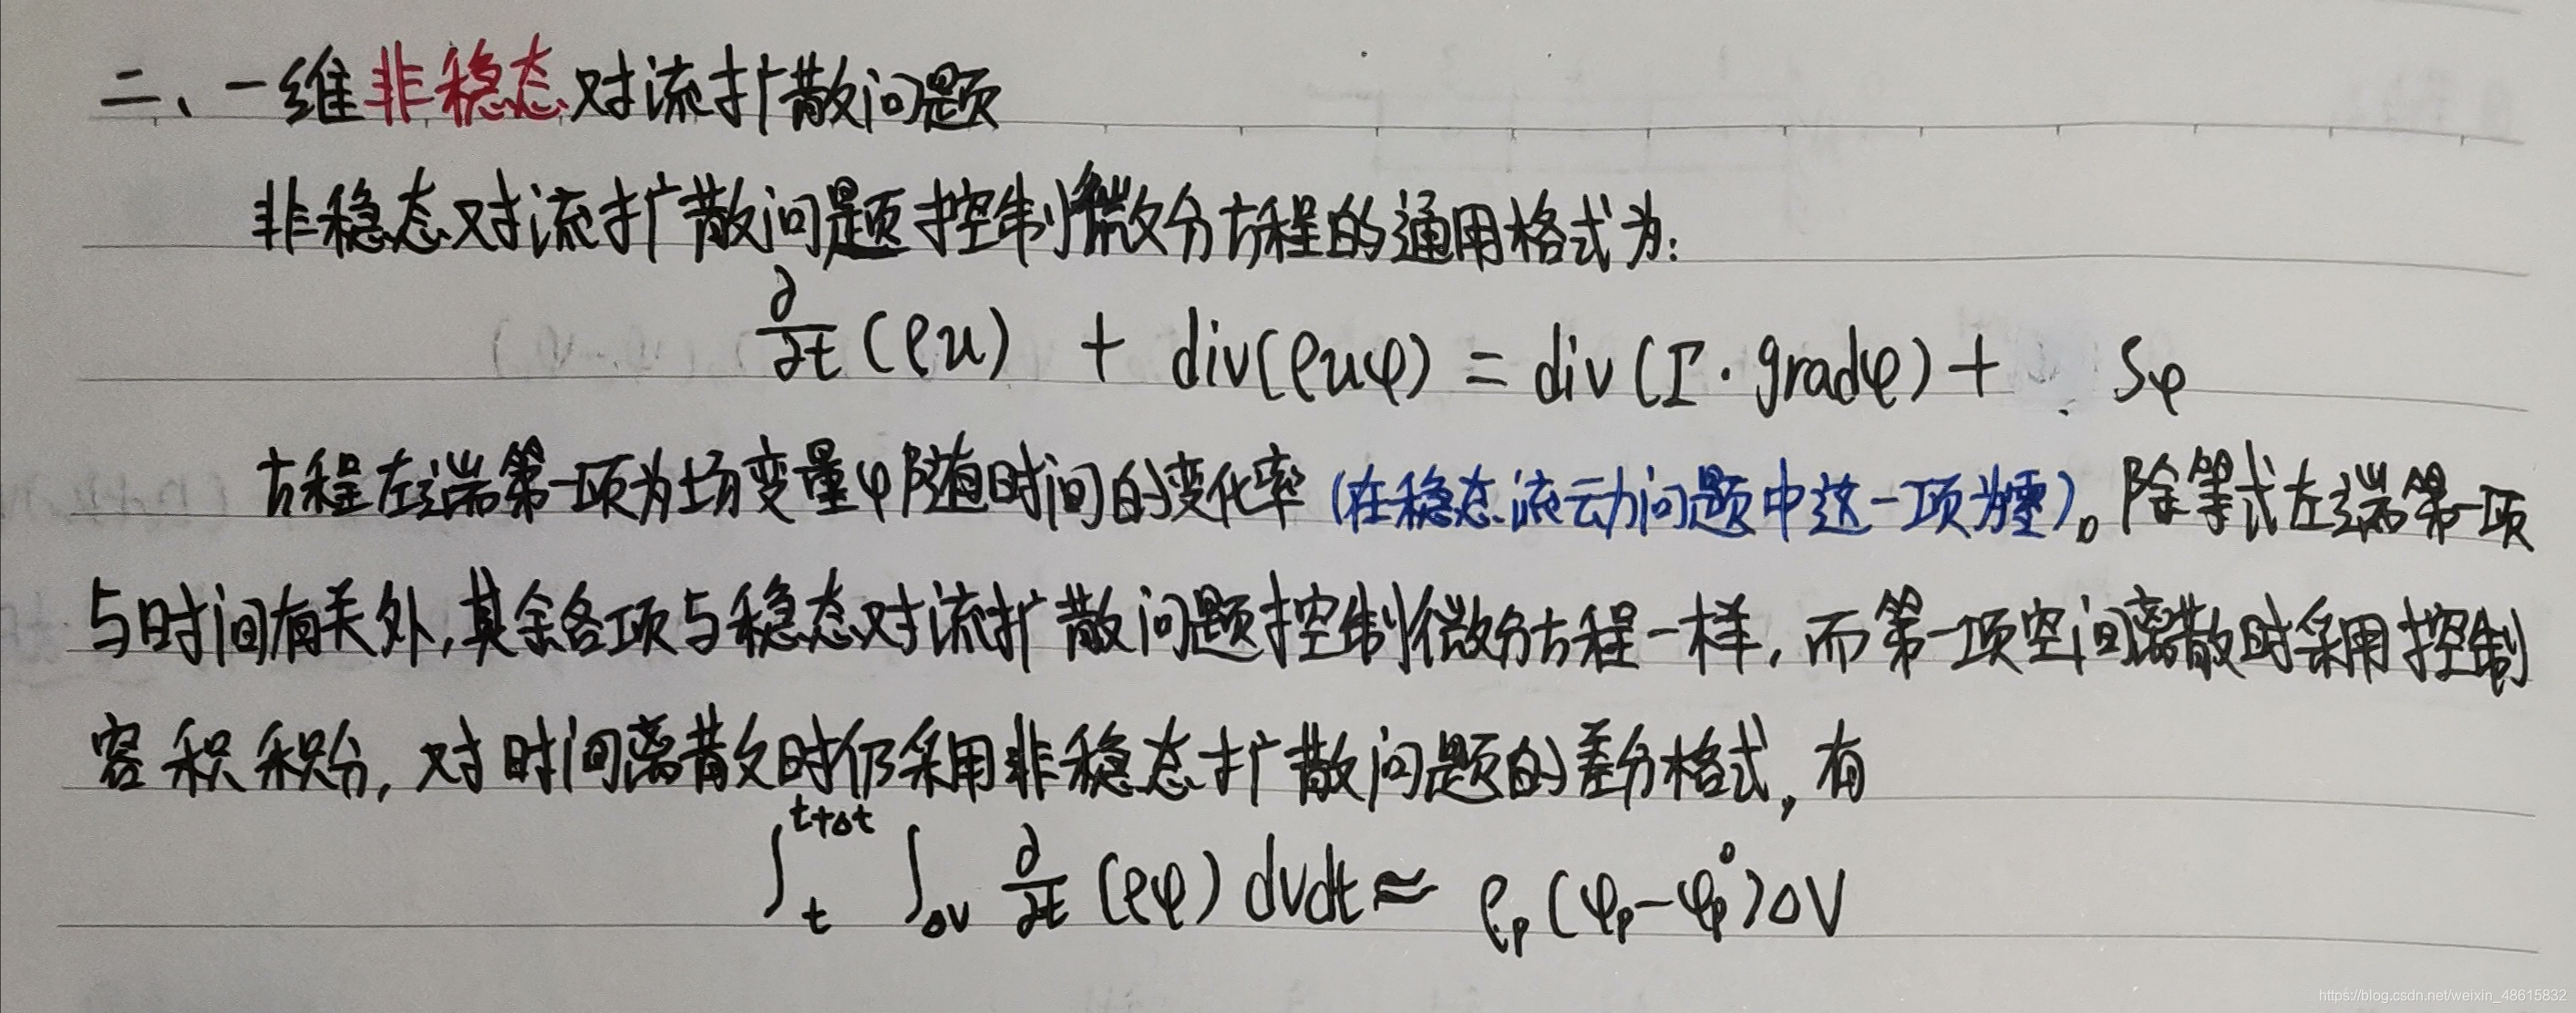 二、一维非稳态对流扩散问题
非稳态对流扩散问题控制微分方程的通用格式为:
∂/∂t (ρu) + div(ρuφ) = div(Γ·gradφ) + Sφ
方程左端第一项为场变量φ随时间的变化率(在稳态流动问题中这一项为零)。除等式左端第一项
与时间有关外,其余各项与稳态对流扩散问题控制微分方程一样,而第一项空间离散时采用控制
容积积分,对时间离散时仍采用非稳态扩散问题的差分格式,有
∫_t^{t+Δt} ∫_{ΔV} ∂/∂t (ρφ) dVdt ≈ ρ_P (φ_P - φ_P^0) ΔV
https://blog.csdn.net/weixin_48615832